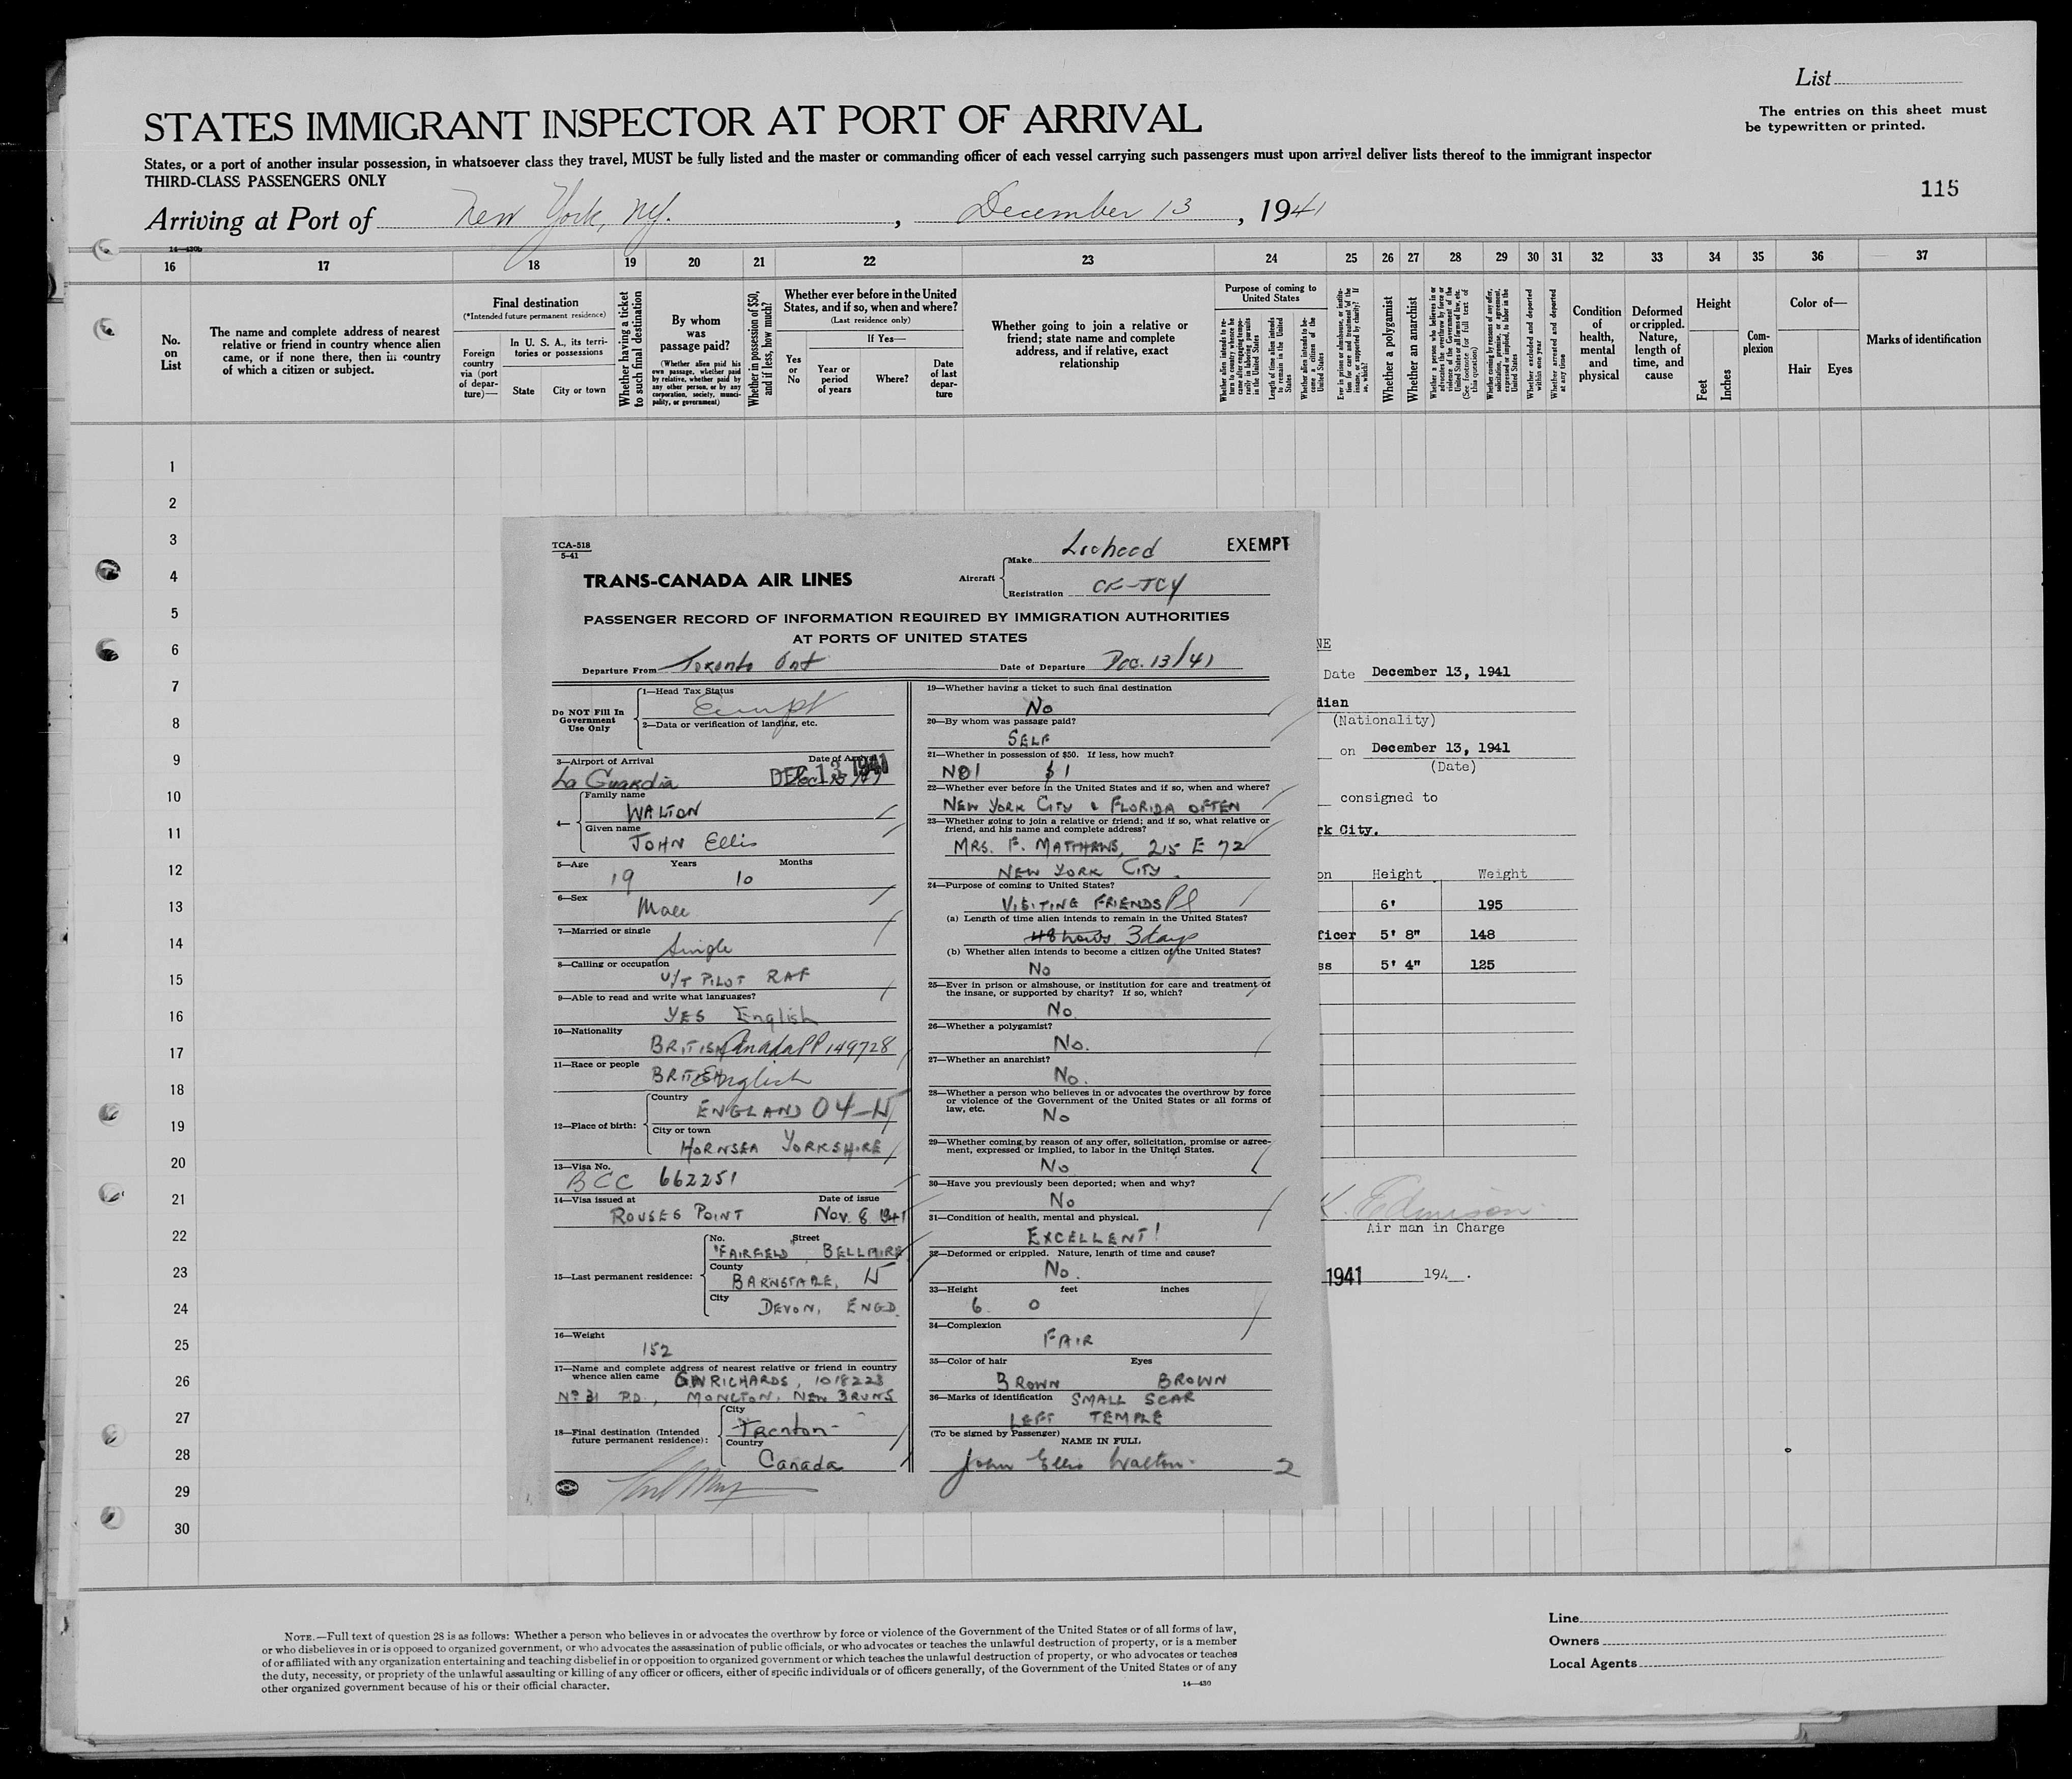 List
The entries on this sheet must
be typewritten or printed.
STATES IMMIGRANT INSPECTOR AT PORT OF ARRIVAL
States, or a port of another insular possession, in whatsoever class they travel, MUST be fully listed and the master or commanding officer of each vessel carrying such passengers must upon arrival deliver lists thereof to the immigrant inspector
THIRD-CLASS PASSENGERS ONLY
115
Arriving at Port of New York, NY. , December 13 , 1941
14—430b
16 17 18 19 20 21 22 23 24 25 26 27 28 29 30 31 32 33 34 35 36 37
No. on List
The name and complete address of nearest
relative or friend in country whence alien
came, or if none there, then in country
of which a citizen or subject.
Final destination
(*Intended future permanent residence)
Foreign country via (port of departure)—
In U. S. A., its territories or possessions
State
City or town
Whether having a ticket to such final destination
By whom was passage paid?
(Whether alien paid his own passage, whether paid by relative, whether paid by any other person, or by any corporation, society, municipality, or government)
Whether in possession of $50, and if less, how much?
Whether ever before in the United States, and if so, when and where?
(Last residence only)
Yes or No
If Yes—
Year or period of years
Where?
Date of last departure
Whether going to join a relative or
friend; state name and complete
address, and if relative, exact
relationship
Purpose of coming to United States
Whether alien intends to return to country whence he came after engaging temporarily in laboring pursuits in the United States
Length of time alien intends to remain in the United States
Whether alien intends to become a citizen of the United States
Ever in prison or almshouse, or institution for care and treatment of the insane, or supported by charity? If so, which?
Whether a polygamist
Whether an anarchist
Whether a person who believes in or advocates the overthrow by force or violence of the Government of the United States or all forms of law, etc. (See footnote for full text of this question)
Whether coming by reason of any offer, solicitation, promise, or agreement, expressed or implied, to labor in the United States
Whether excluded and deported within one year
Whether arrested and deported at any time
Condition of health, mental and physical
Deformed or crippled. Nature, length of time, and cause
Height
Feet
Inches
Complexion
Color of—
Hair
Eyes
Marks of identification
1
2
3
4
5
6
7
8
9
10
11
12
13
14
15
16
17
18
19
20
21
22
23
24
25
26
27
28
29
30
TCA-518
5-41
TRANS-CANADA AIR LINES
Aircraft
Make Locheed
Registration CF-TCY
EXEMPT
PASSENGER RECORD OF INFORMATION REQUIRED BY IMMIGRATION AUTHORITIES
AT PORTS OF UNITED STATES
Departure From Toronto Ont Date of Departure Dec. 13/41
Do NOT Fill In Government Use Only
1—Head Tax Status
Exempt
2—Data or verification of landing, etc.
3—Airport of Arrival Date of Arrival
La Guardia DEC 13 1941
4—
Family name
WALTON
Given name
JOHN Ellis
5—Age Years Months
19 10
6—Sex
Male
7—Married or single
Single
8—Calling or occupation
U/T PILOT RAF
9—Able to read and write what languages?
YES English
10—Nationality
BRITISH Canada PP 149728
11—Race or people
BRITISH English
12—Place of birth:
Country
ENGLAND 04-W
City or town
HORNSEA YORKSHIRE
13—Visa No.
BCC 662251
14—Visa issued at Date of issue
ROUSES POINT Nov. 8 1941
15—Last permanent residence:
No. Street
"FAIRFIELD" BELLMIRE
County
BARNSTAPLE, W
City
DEVON, ENGD.
16—Weight
152
17—Name and complete address of nearest relative or friend in country
whence alien came G W RICHARDS, 1018223
No 31 P.D., MONCTON, NEW BRUNS
18—Final destination (Intended
future permanent residence):
City
Trenton
Country
Canada
19—Whether having a ticket to such final destination
No
20—By whom was passage paid?
SELF
21—Whether in possession of $50. If less, how much?
NO! $1
22—Whether ever before in the United States and if so, when and where?
NEW YORK CITY & FLORIDA OFTEN
23—Whether going to join a relative or friend; and if so, what relative or
friend, and his name and complete address?
MRS. F. MATTHEWS, 215 E 72
NEW YORK CITY.
24—Purpose of coming to United States?
VISITING FRIENDS Pl
(a) Length of time alien intends to remain in the United States?
48 hours 3 days
(b) Whether alien intends to become a citizen of the United States?
No
25—Ever in prison or almshouse, or institution for care and treatment of
the insane, or supported by charity? If so, which?
No.
26—Whether a polygamist?
No.
27—Whether an anarchist?
No.
28—Whether a person who believes in or advocates the overthrow by force
or violence of the Government of the United States or all forms of
law, etc.
No
29—Whether coming by reason of any offer, solicitation, promise or agree-
ment, expressed or implied, to labor in the United States.
No
30—Have you previously been deported; when and why?
No
31—Condition of health, mental and physical.
EXCELLENT!
32—Deformed or crippled. Nature, length of time and cause?
No.
33—Height feet inches
6 0
34—Complexion
FAIR
35—Color of hair Eyes
BROWN BROWN
36—Marks of identification SMALL SCAR
LEFT TEMPLE
(To be signed by Passenger)
NAME IN FULL
John Ellis Walton.
2
NE
Date December 13, 1941
dian
(Nationality)
on December 13, 1941
(Date)
consigned to
rk City.
on Height Weight
6' 195
ficer 5' 8" 148
ss 5' 4" 125
K. Edmison
Air man in Charge
1941 194 .
NOTE.—Full text of question 28 is as follows: Whether a person who believes in or advocates the overthrow by force or violence of the Government of the United States or of all forms of law,
or who disbelieves in or is opposed to organized government, or who advocates the assassination of public officials, or who advocates or teaches the unlawful destruction of property, or is a member
of or affiliated with any organization entertaining and teaching disbelief in or opposition to organized government or which teaches the unlawful destruction of property, or who advocates or teaches
the duty, necessity, or propriety of the unlawful assaulting or killing of any officer or officers, either of specific individuals or of officers generally, of the Government of the United States or of any
other organized government because of his or their official character.
14—430
Line
Owners
Local Agents